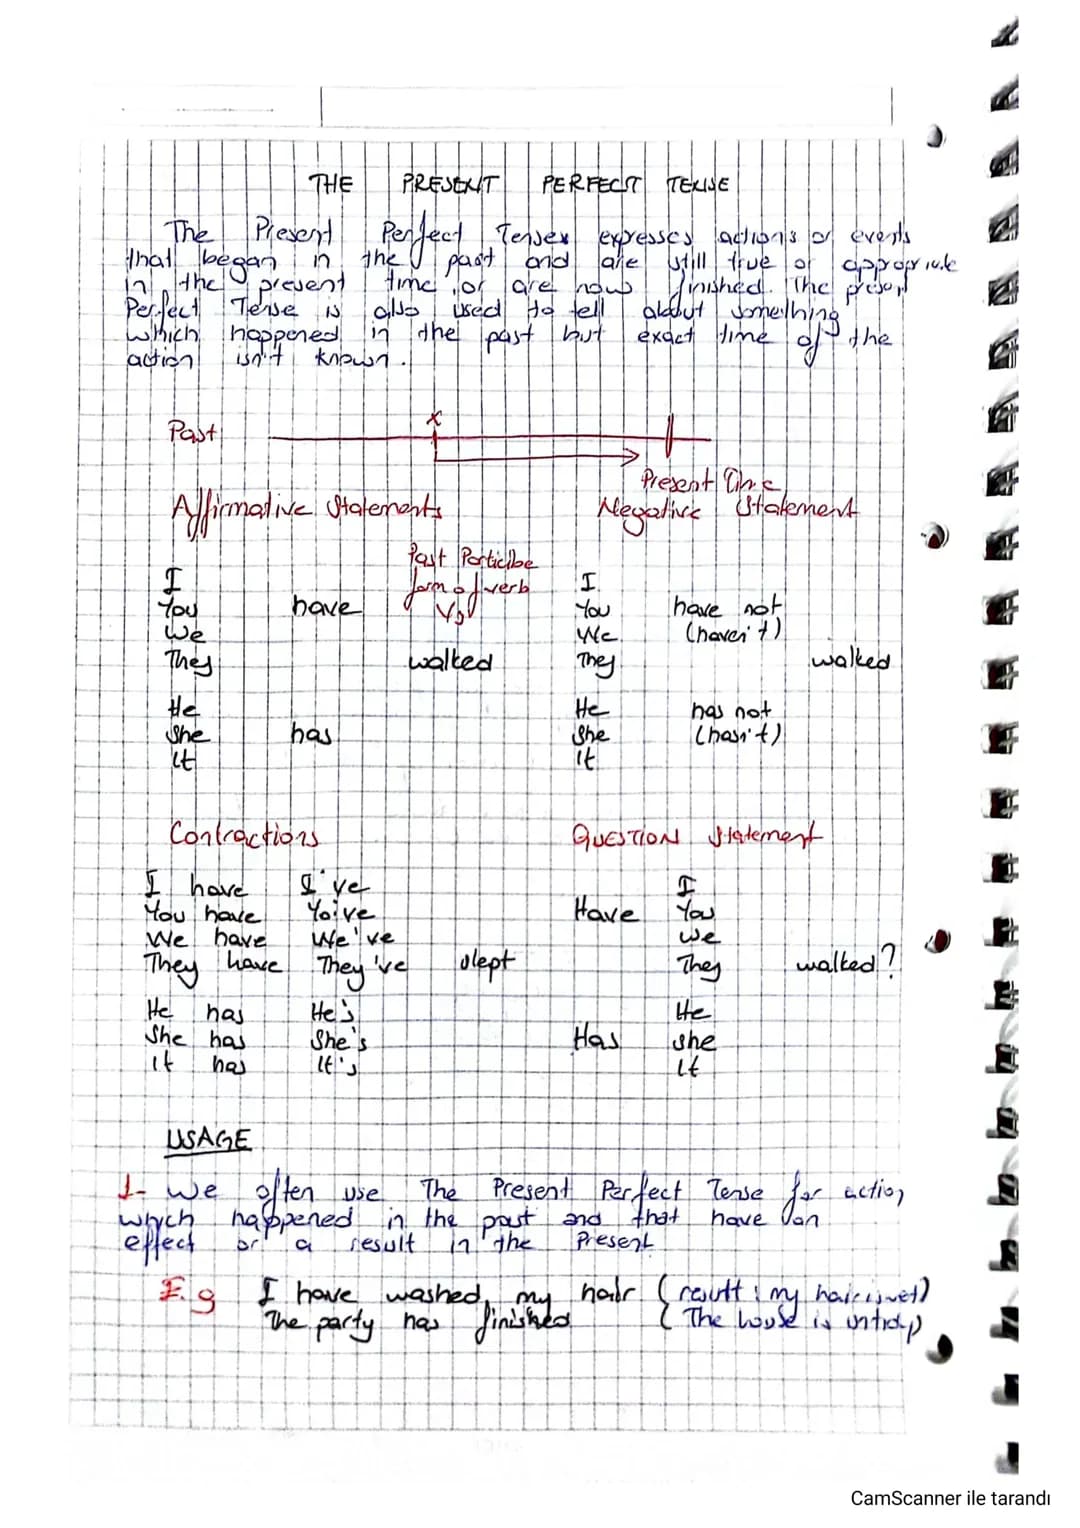 THE PRESENT PERFECT TENSE
The Present Perfect Tenses expresses actions or events
that began in the past and are still true or appropriate
in the present time or are now finished. The present
Perfect Tense is also used to tell about something
which happened in the past but exact time of the
action isn't known.
x
Past
Present Time
Affirmative Statements
Negative Statement
Past Participe
form of verb
V3
I
You have
We
They walked
He
She has
It
I
You have not
We (haven't)
They walked
He has not
She (hasn't)
It
Contractions
QUESTION Statement
I have I've
You have You've
We have We've
They have They've slept
He has He's
She has She's
It has It's
I
Have You
We
They walked?
He
Has she
It
USAGE
1- We often use The Present Perfect Tense for action
which happened in the past and that have an
effect or a result in the Present
E.g I have washed my hair (result: my hair is wet)
The party has finished (The house is untidy)
CamScanner ile tarandı